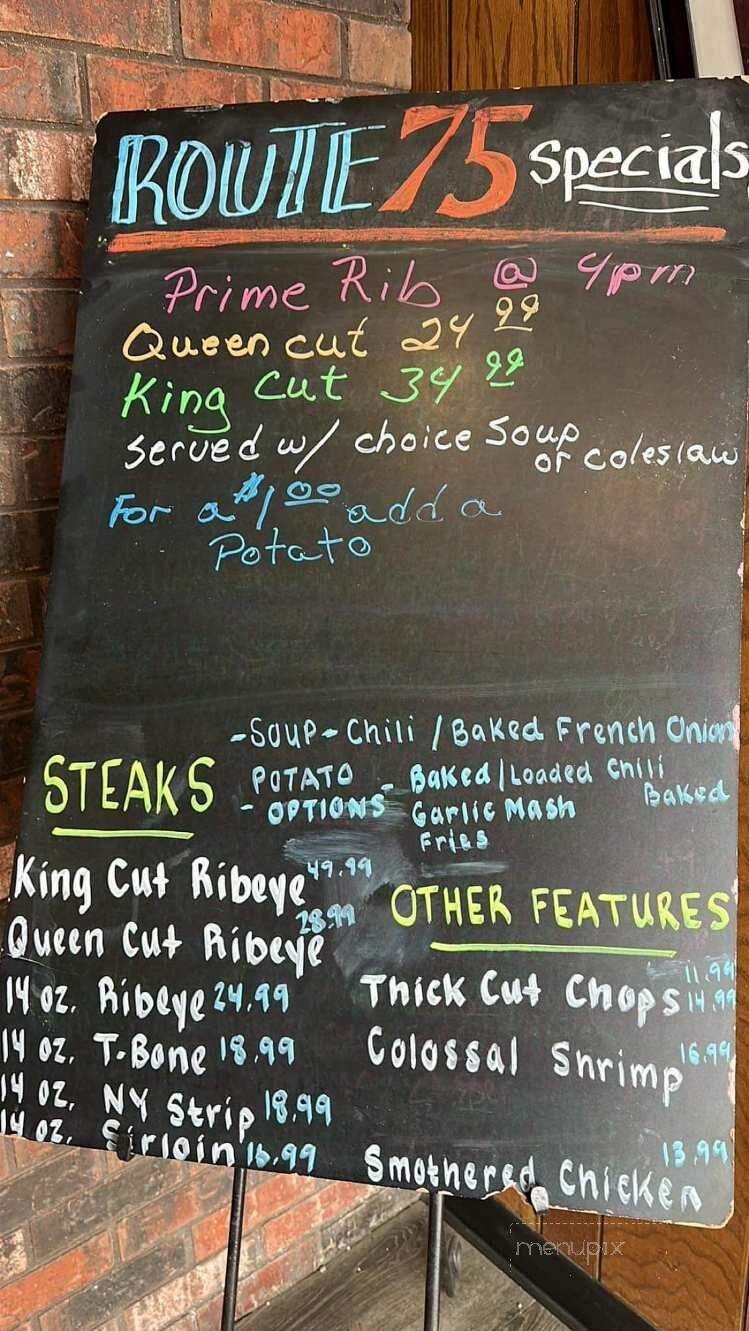 ROUTE 75 specials
Prime Rib @ 4pm
Queen cut 24 99
King Cut 34 99
Served w/ choice Soup
or coleslaw
For a $1 00 add a
Potato
-SOUP- Chili / Baked French Onion
STEAKS
POTATO - Baked/Loaded Chili
Baked
- OPTIONS Garlic Mash
Fries
King Cut Ribeye 49.99
Queen Cut Ribeye 28.99
14 oz. Ribeye 24.99
14 oz. T-Bone 18.99
14 oz. NY Strip 18.99
14 oz. Sirloin 16.99
OTHER FEATURES
11.99
Thick Cut Chops 14.99
Colossal Shrimp 16.99
Smothered Chicken 13.99
menupix